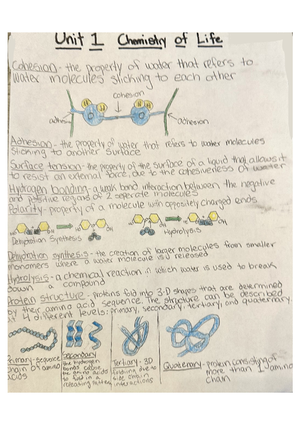 Unit 1 Chemistry of Life
Cohesion - the property of water that refers to
water molecules sticking to each other
cohesion
adhesion
Adhesion - the property of water that refers to water molecules
sticking to another surface
Surface tension - the property of the surface of a liquid that allows it
to resist an external force, due to the cohesiveness of water
Hydrogen bonding - a weak bond interaction between the negative
and positive regions of 2 seperate molecules
Polarity - property of a molecule with oppositely charged ends
Dehydration Synthesis Hydrolysis
Dehydration synthesis - the creation of larger molecules from smaller
monomers where a water molecule is released
Hydrolysis - a chemical reaction in which water is used to break
down a compound
Protein structure - proteins fold into 3-D shapes that are determined
by their amino acid sequence. the structure can be described
by 4 different levels: primary, secondary, tertiary, and quaternary
Primary - sequence
chain of amino
acids
Secondary
the hydrogen
bonds
the amino acids
to fold in a
repeating pattern
Tertiary - 3D
folding due to
side chain
interactions
Quaternary - protein consisting of
more than 1 amino
chain